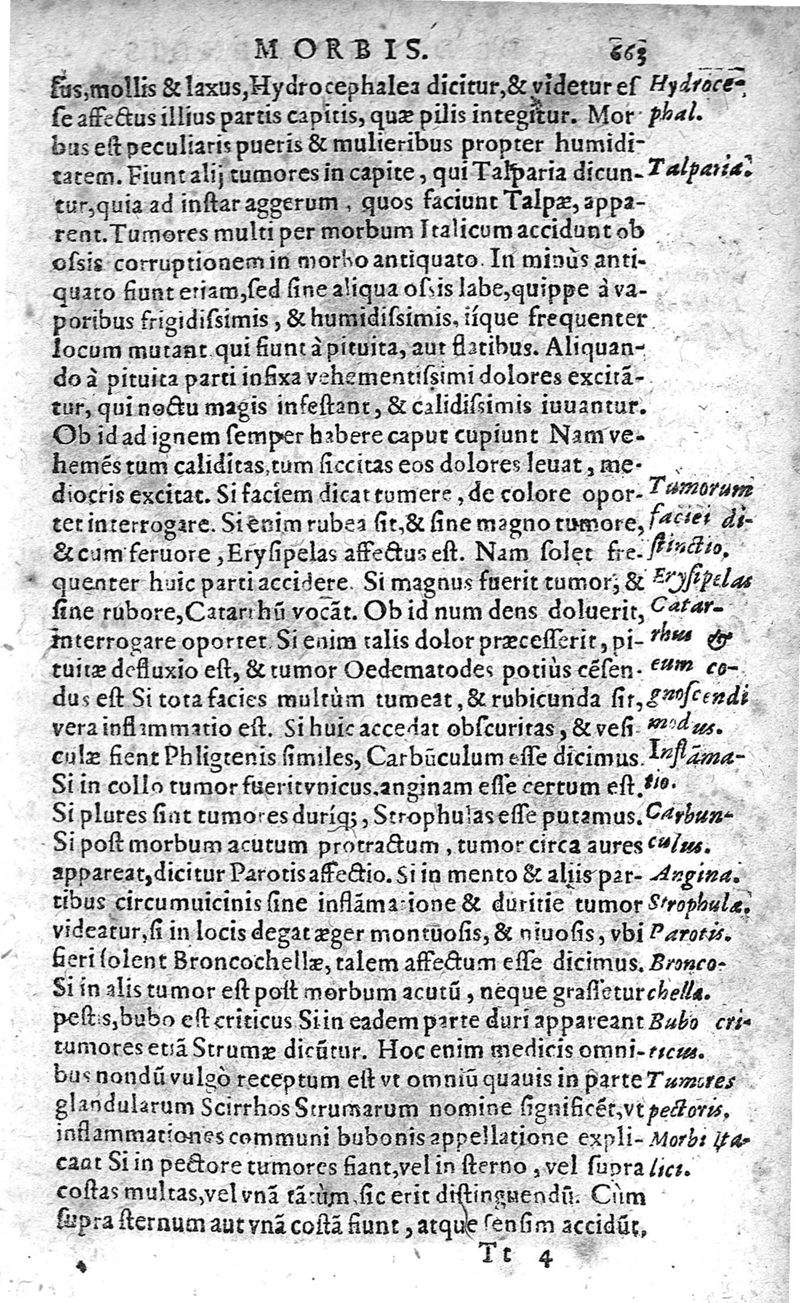 MORBIS. 663
sus,mollis & laxus,Hydrocephalea dicitur,& videtur es Hydroce-
se affectus illius partis capitis, quæ pilis integitur. Mor phal.
bus est peculiaris pueris & mulieribus propter humidi-
tatem. Fiunt alij tumores in capite, qui Talparia dicun- Talparia.
tur,quia ad instar aggerum, quos faciunt Talpæ, appa-
rent. Tumores multi per morbum Italicum accidunt ob
ossis corruptionem in morbo antiquato. In minùs anti-
quato fiunt etiam,sed sine aliqua ossis labe,quippe à va-
poribus frigidissimis, & humidissimis, iíque frequenter
locum mutant qui fiunt à pituita, aut flatibus. Aliquan-
do à pituita parti infixa vehementissimi dolores excitã-
tur, qui noctu magis infestant, & calidissimis iuuantur.
Ob id ad ignem semper habere caput cupiunt Nam ve-
hemẽs tum caliditas,tum siccitas eos dolores leuat, me-
diocris excitat. Si faciem dicat tumere, de colore opor- Tumorum
tet interrogare. Si enim rubea sit,& sine magno tumore, faciei di-
& cum feruore, Erysipelas affectus est. Nam solet fre- stinctio,
quenter huic parti accidere. Si magnus fuerit tumor, & Erysipelas
sine rubore,Catarrhũ vocãt. Ob id num dens doluerit, Catar-
interrogare oportet Si enim talis dolor præcesserit, pi- rhus &
tuitæ defluxio est, & tumor Oedematodes potiùs cẽsen- eum co-
dus est Si tota facies multùm tumeat, & rubicunda sit, gnoscendi
vera inflammatio est. Si huic accedat obscuritas, & vesi modus.
culæ fient Phligtenis similes, Carbũculum esse dicimus. Inflãma-
Si in collo tumor fuerit vnicus.anginam esse certum est. tio.
Si plures sint tumores duríq;, Strophulas esse putamus. Carbun-
Si post morbum acutum protractum, tumor circa aures culus.
appareat,dicitur Parotis affectio. Si in mento & aliis par- Angina.
tibus circumuicinis sine inflãmatione & duritie tumor Strophulæ.
videatur,si in locis degat æger montuosis, & niuosis, vbi Parotis.
fieri solent Broncochellæ, talem affectum esse dicimus. Bronco-
Si in alis tumor est post morbum acutũ, neque grassetur chella.
pestis,bubo est criticus Si in eadem parte duri appareant Bubo cri-
tumores etiã Strumæ dicũtur. Hoc enim medicis omni- ticus.
bus nondũ vulgò receptum est vt omniũ quauis in parte Tumores
glandularum Scirrhos Strumarum nomine significẽt,vt pectoris.
inflammationes communi bubonis appellatione expli- Morbi Ita-
cant Si in pectore tumores fiant,vel in sterno, vel supra lici.
costas multas,vel vnã tãtùm, sic erit distinguendũ. Cùm
supra sternum aut vnã costã fiunt, atque sensim accidũt,
Tt 4